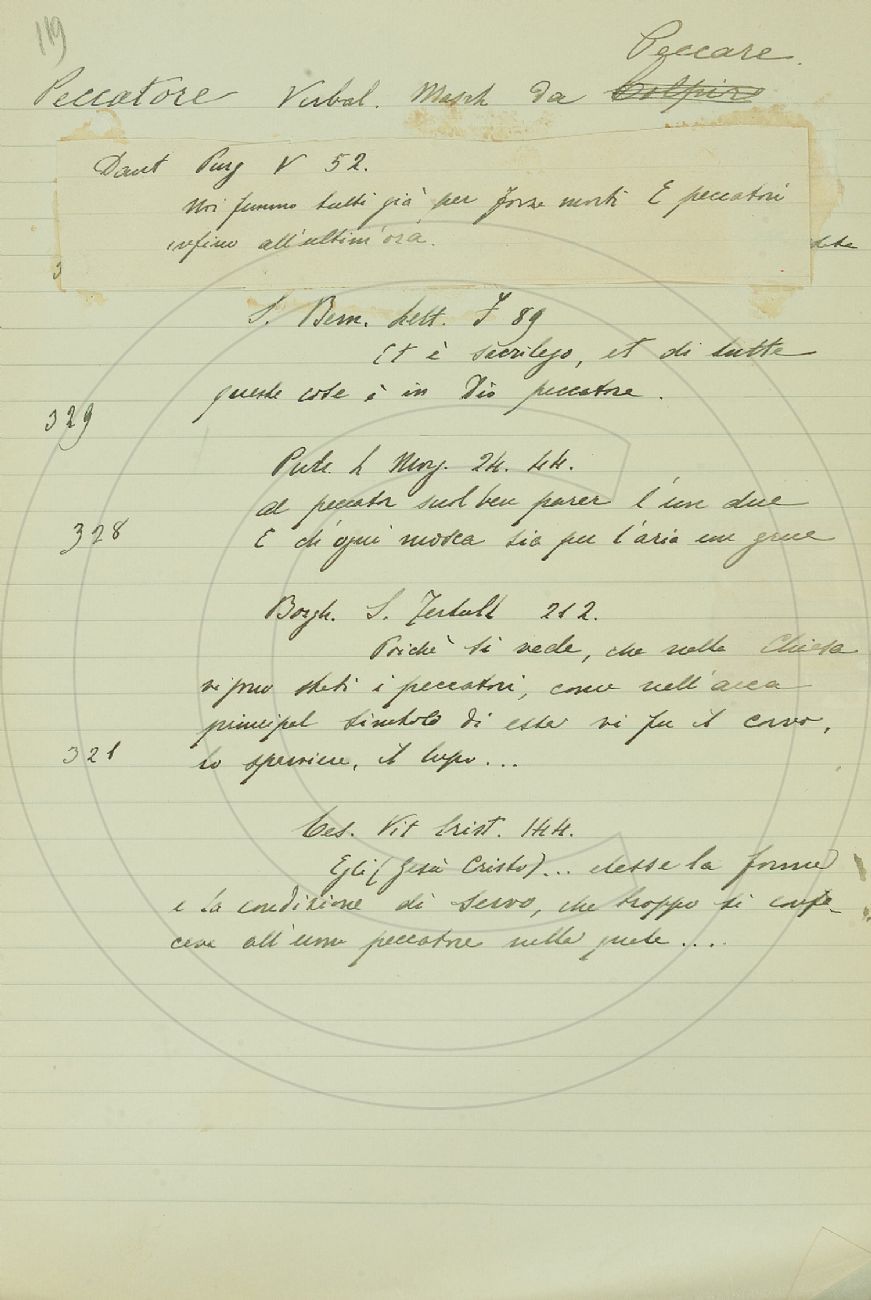 119
Peccare.
Peccatore Verbal. Masch da Colpire
Dant Purg V 52.
Noi fummo tutti già per forza morti E peccatori
infino all'ultim'ora.
3
S. Bern. Lett. I 89
Et è sacrilego, et di tutte
queste cose è in Dio peccatore.
329
Pulc. L Morg. 24. 44.
al peccator suol ben parer l'un due
328 E ch'ogni mosca sia per l'aria un grue
Borgh. S. Tertull 212.
Poichè si vede, che nella Chiesa
vi sono stati i peccatori, come nell'arca
principal simbolo di essa vi fu il corvo,
321 lo sparviere, il lupo...
Ces. Vit Crist. 144.
Egli (Gesù Cristo)... elesse la forma
e la condizione di servo, che troppo si confa-
ceva all'uom peccatore nella quale....